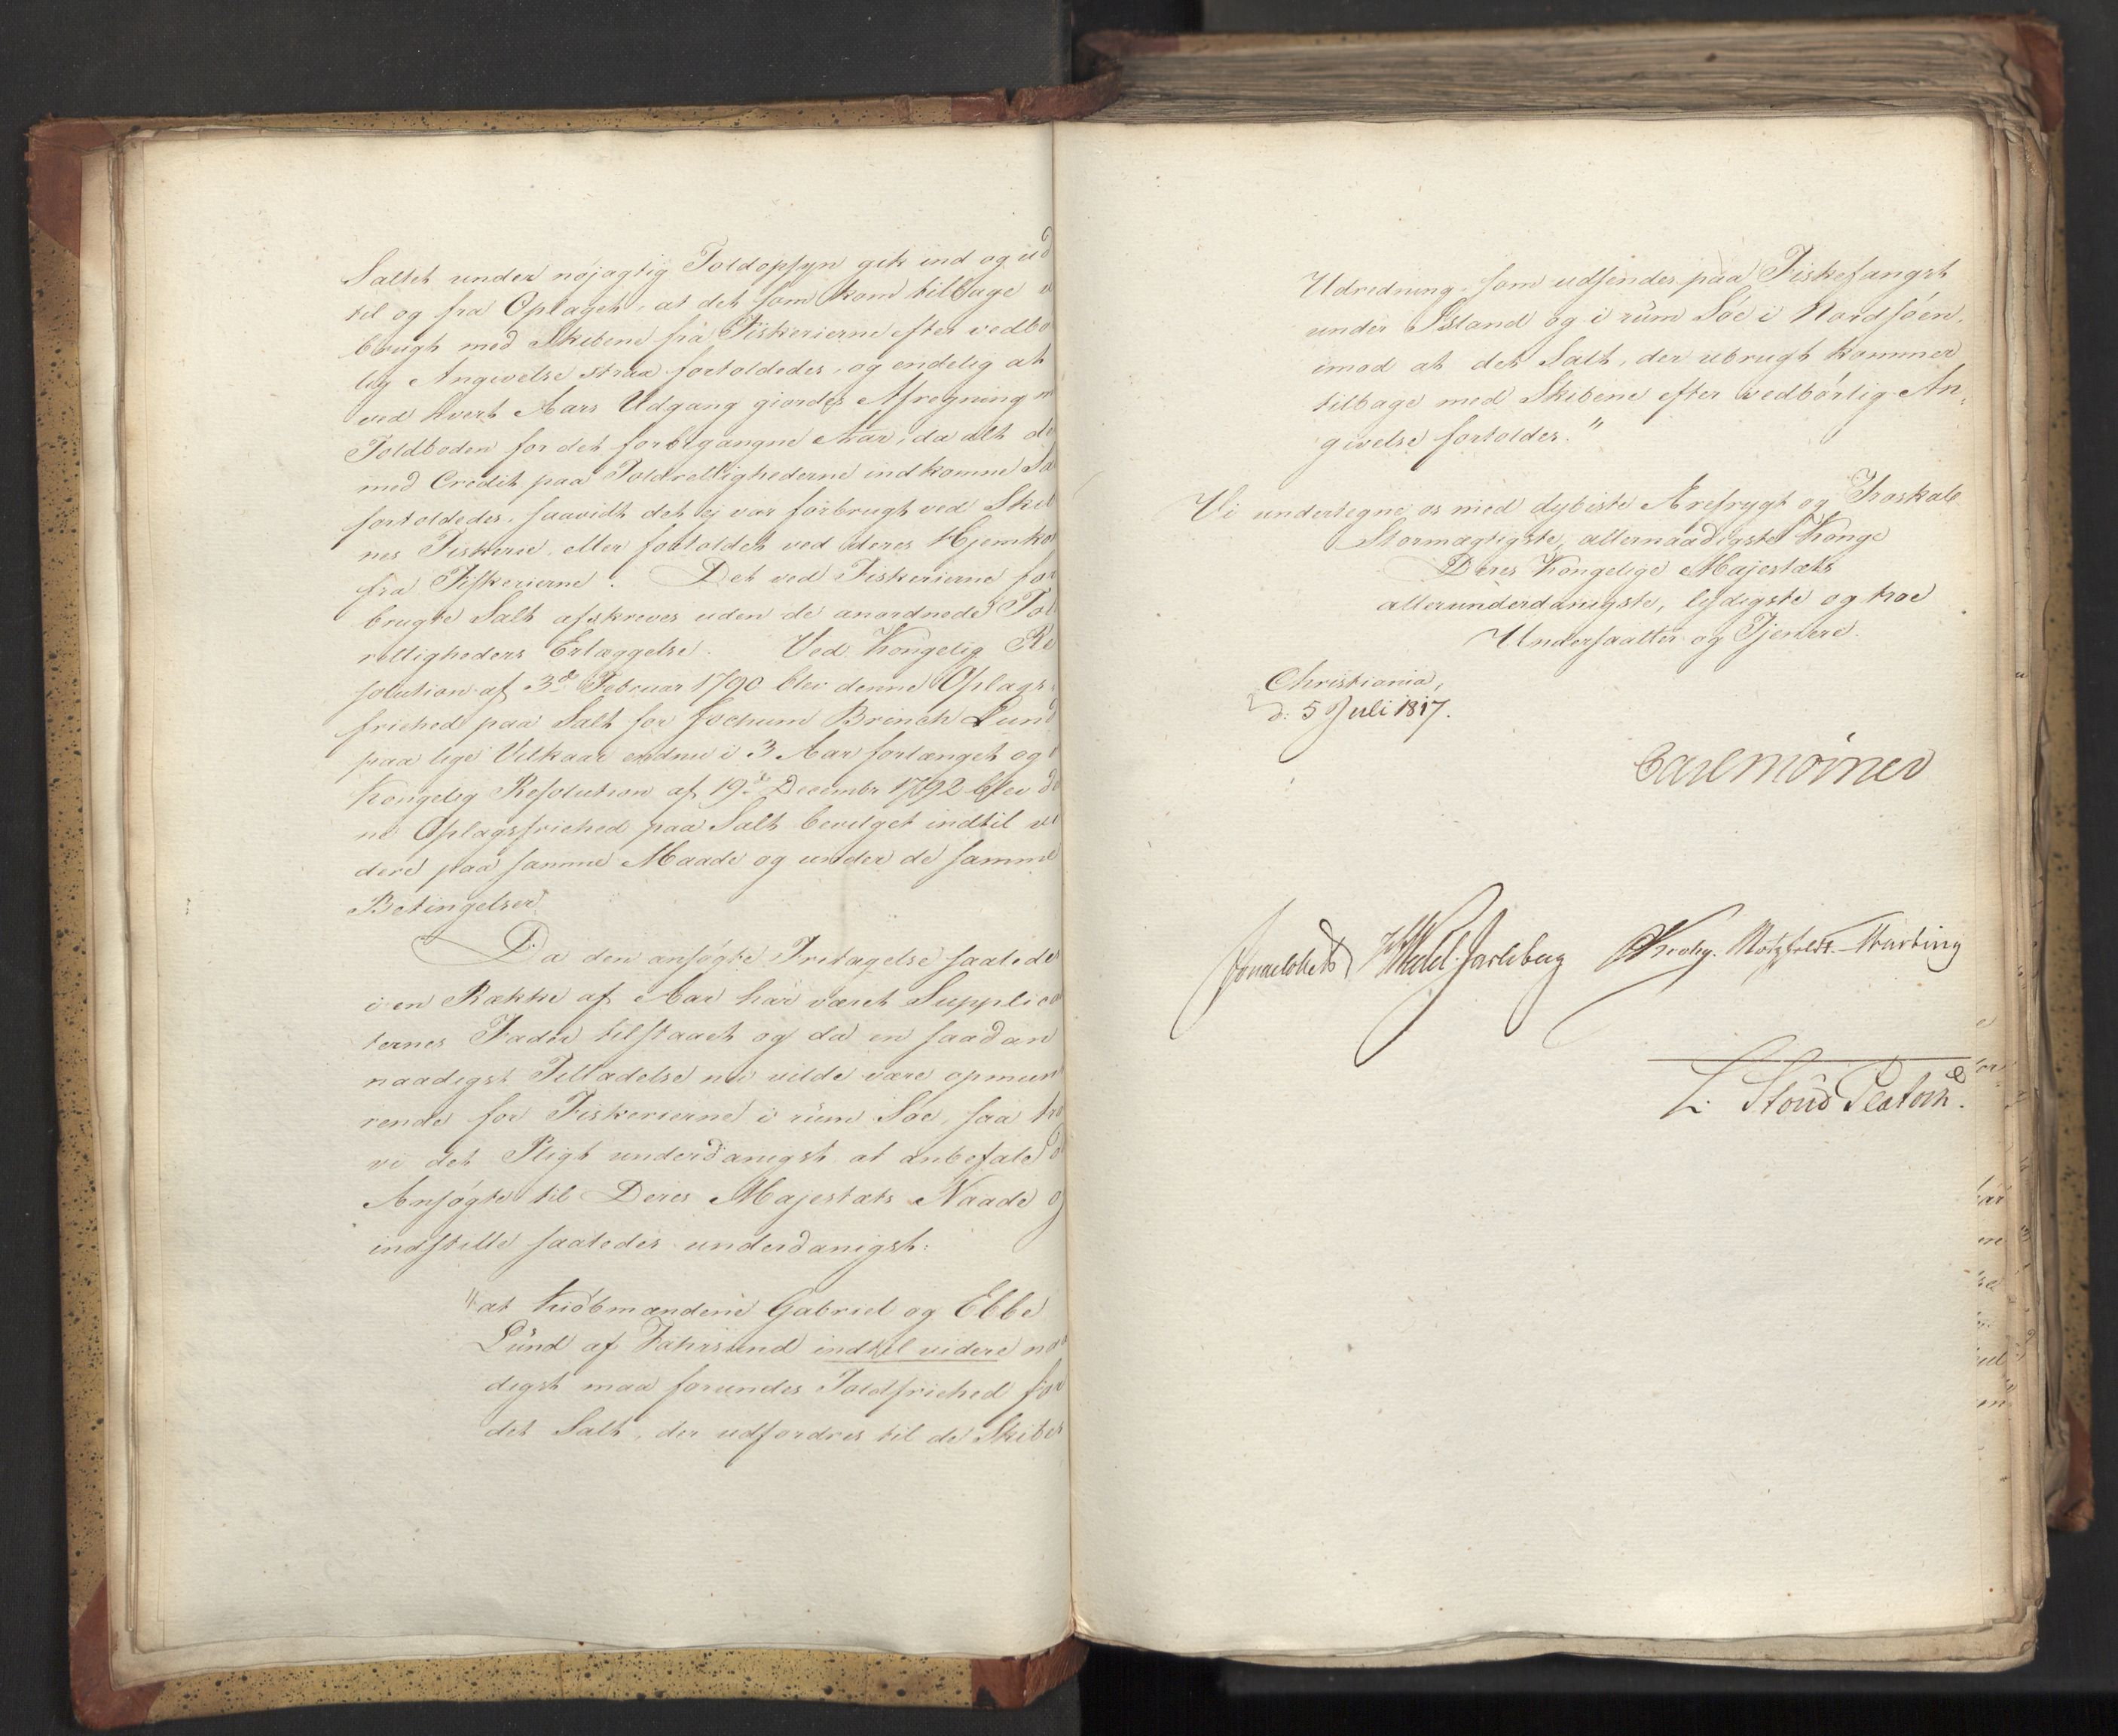 Saltet under nøjagtig Toldopsyn gik ind og ud
til og fra Oplaget, at det som kom tilbage u
brugt med Skibene fra Fiskerierne efter vedbø
lig Angivelse strax fortoldedes, og endelig at
ved hvert Aars Udgang giordes Afregning m
Toldboden for det forbigangne Aar, da alt de
med Credit paa Toldrettighederne indkomne Sa
fortoldedes, saavidt det ej var forbrugt ved Skib
nes Fiskerie, eller fortoldet ved deres Hjemko
fra Fiskerierne. Det ved Fiskerierne for
brugte Salt afskreves uden de anordnede Tol
rettigheders Erlæggelse. Ved Kongelig Re
solution af 3de Februar 1790 blev denne Oplags
friehed paa Salt for Jochum Brinch Lund
paa lige Vilkaar endnu i 3 Aar forlænget og
Kongelig Resolution af 19de Decembr 1792 blev de
ne Oplagsfriehed paa Salt bevilget indtil vi
dere paa samme Maade og under de samme
Betingelser.
Da den ansøgte Fritagelse saaledes
i en Række af Aar har været Supplican
ternes Fader tilstaaet og da en saadan
naadigst Tilladelse nu vilde være opmunt
rende for Fiskerierne i rum Søe, saa tro
vi det Pligt underdanigst at anbefale d
Ansøgte til Deres Majestæts Naade og
indstille saaledes underdanigst:
"at Kiøbmændene Gabriel og Ebbe
Lund af Fahrsund indtil videre naa
digst maa forundes Toldfriehed for
det Salt, der udfordres til de Skibes
Udredning, som udsendes paa Fiskefangst
under Island og i rum Søe i Nordsøen,
imod at det Salt, der ubrugt kommer
tilbage med Skibene efter vedbørlig An-
givelse fortoldes."
Vi undertegne os med dybeste Ærefrygt og Troskab
Stormægtigste, allernaadigste Konge
Deres Kongelige Majestæts
allerunderdanigste, lydigste og troe
Undersaatter og Tjenere.
Christiania,
d: 5 Juli 1817.
Carl Mörner
Sommerhielm Wedel-Jarlsberg Krohg. Motzfeldt. Hartvig
L: Stoud Platou.